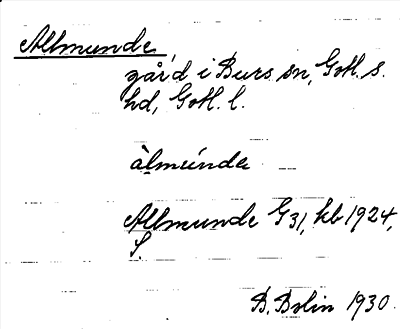 Allmunde,
gård i Burs sn, Gotl. s.
hd, Gotl. l.
àlmúnda
Allmunde G31, kb 1924,
S.
B. Bolin 1930.